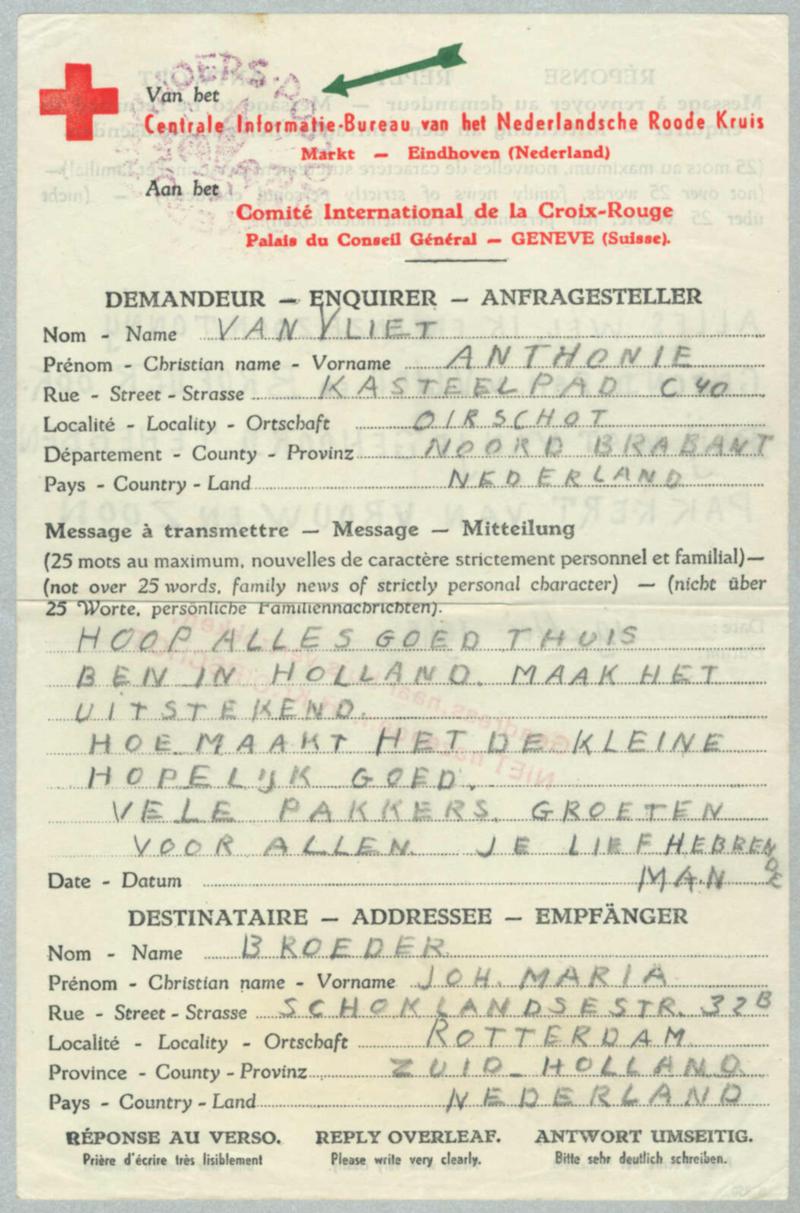 Van het
Centrale Informatie-Bureau van het Nederlandsche Roode Kruis
Markt — Eindhoven (Nederland)
Aan het
Comité International de la Croix-Rouge
Palais du Conseil Général — GENEVE (Suisse).
DEMANDEUR — ENQUIRER — ANFRAGESTELLER
Nom - Name VAN VLIET
Prénom - Christian name - Vorname ANTHONIE
Rue - Street - Strasse KASTEELPAD C 40
Localité - Locality - Ortschaft OIRSCHOT
Département - County - Provinz NOORD BRABANT
Pays - Country - Land NEDERLAND
Message à transmettre — Message — Mitteilung
(25 mots au maximum, nouvelles de caractère strictement personnel et familial)—
(not over 25 words, family news of strictly personal character) — (nicht über
25 Worte, persönliche Familiennachrichten).
HOOP ALLES GOED THUIS
BEN IN HOLLAND. MAAK HET
UITSTEKEND.
HOE MAAKT HET DE KLEINE
HOPELIJK GOED.
VELE PAKKERS. GROETEN
VOOR ALLEN. JE LIEFHEBBENDE
Date - Datum MAN
DESTINATAIRE — ADDRESSEE — EMPFÄNGER
Nom - Name BROEDER
Prénom - Christian name - Vorname JOH. MARIA
Rue - Street - Strasse SCHOKLANDSESTR. 32B
Localité - Locality - Ortschaft ROTTERDAM
Province - County - Provinz ZUID-HOLLAND
Pays - Country - Land NEDERLAND
RÉPONSE AU VERSO. REPLY OVERLEAF. ANTWORT UMSEITIG.
Prière d'écrire très lisiblement Please write very clearly. Bitte sehr deutlich schreiben.